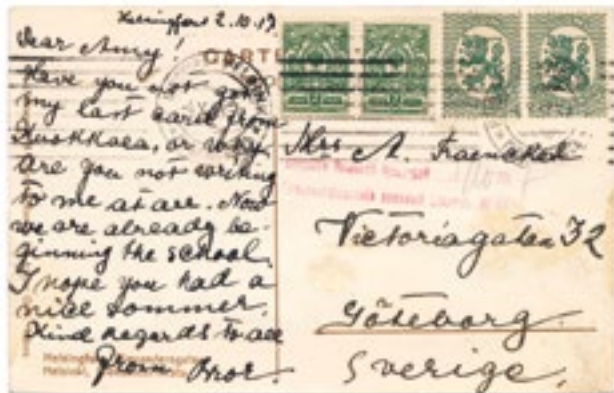 Helsingfors 2.10.17.
Dear Amy!
Have you not got
my last card from
Kuokkala, or why
are you not writing
to me at all. Now
we are already be-
ginning the school.
I hope you had a
nice sommer.
Kind regards to all
From Bror.
CARTE
Miss A. Fraenckel
Victoriagatan 32
Göteborg.
Sverige.